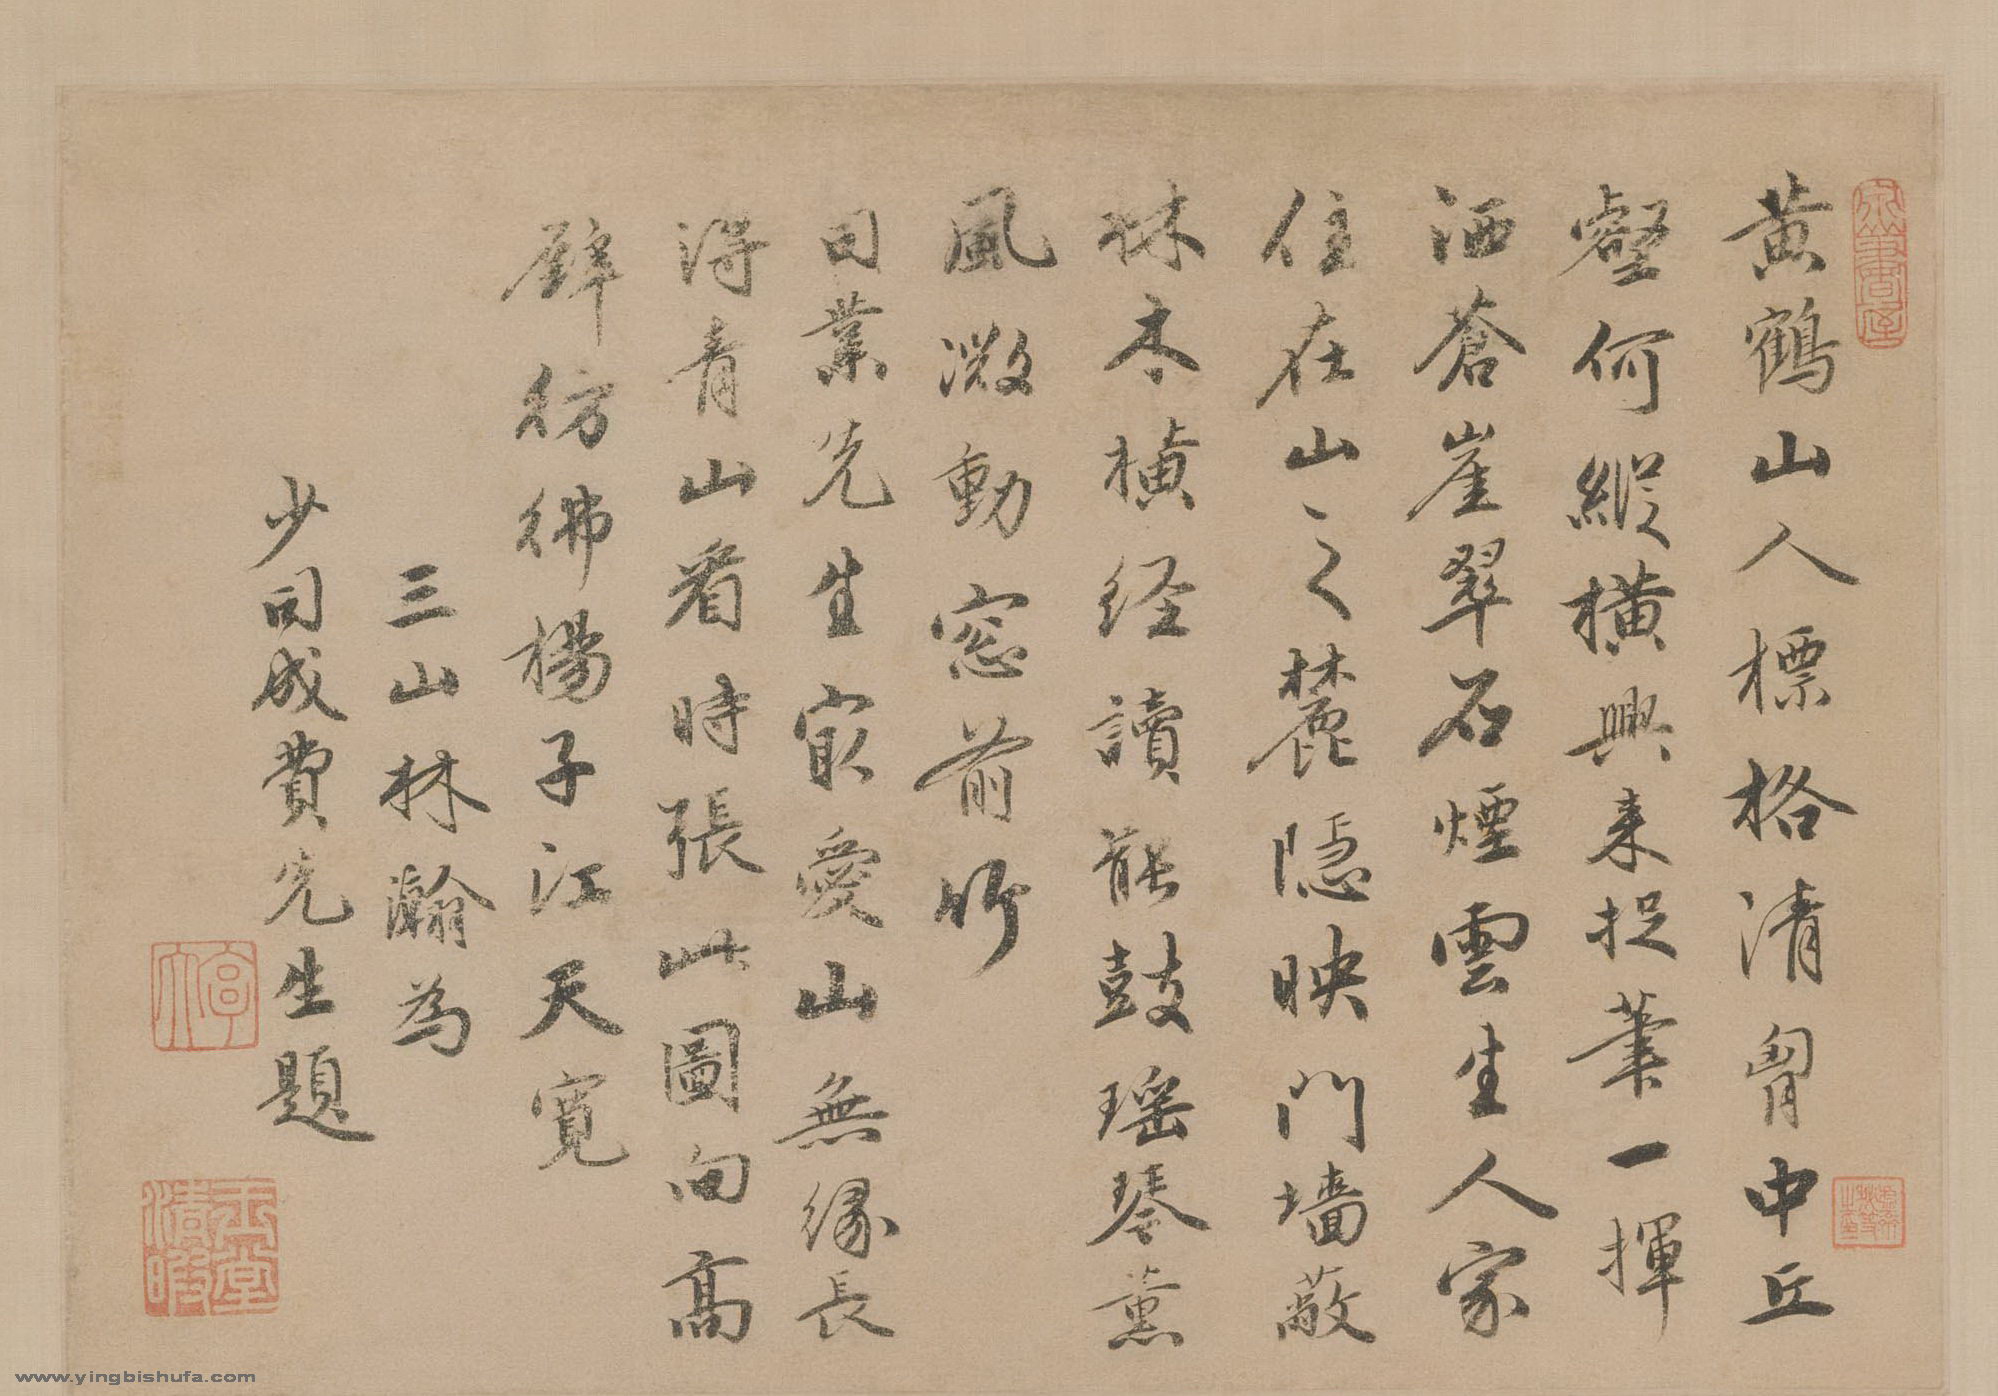 黄鶴山人標格清胷中丘
壑何縱横興来捉筆一揮
洒蒼崖翠石煙雲生人家
住在山之麓隠映門墻蔽
林木横经讀罷鼓瑶琴薫
風微動窓前竹
司業先生㝡愛山無緣長
得青山看時張此圖向髙
壁彷彿楊子江天寛
三山林瀚為
少司成費先生題
亨大
玉堂清暇
www.yingbishufa.com